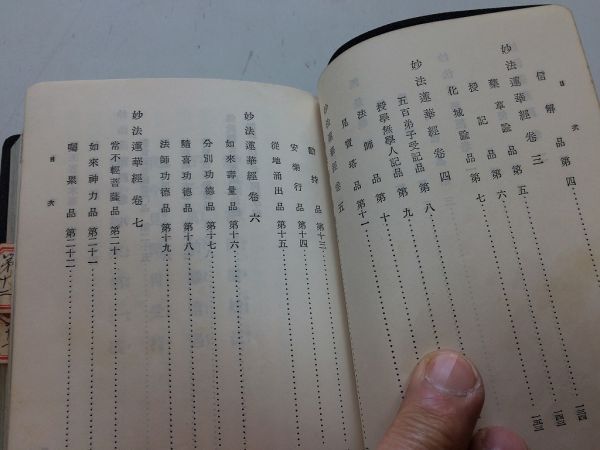 目次
信解品第四
妙法蓮華經卷三
藥草喩品第五
授記品第六
化城喩品第七
妙法蓮華經卷四
五百弟子受記品第八
授學無學人記品第九
法師品第十
見寳塔品第十一
妙法蓮華經卷五
勸持品第十三
安樂行品第十四
從地涌出品第十五
妙法蓮華經卷六
如來壽量品第十六
分別功德品第十七
隨喜功德品第十八
法師功德品第十九
妙法蓮華經卷七
常不輕菩薩品第二十
如來神力品第二十一
囑累品第二十二
目次